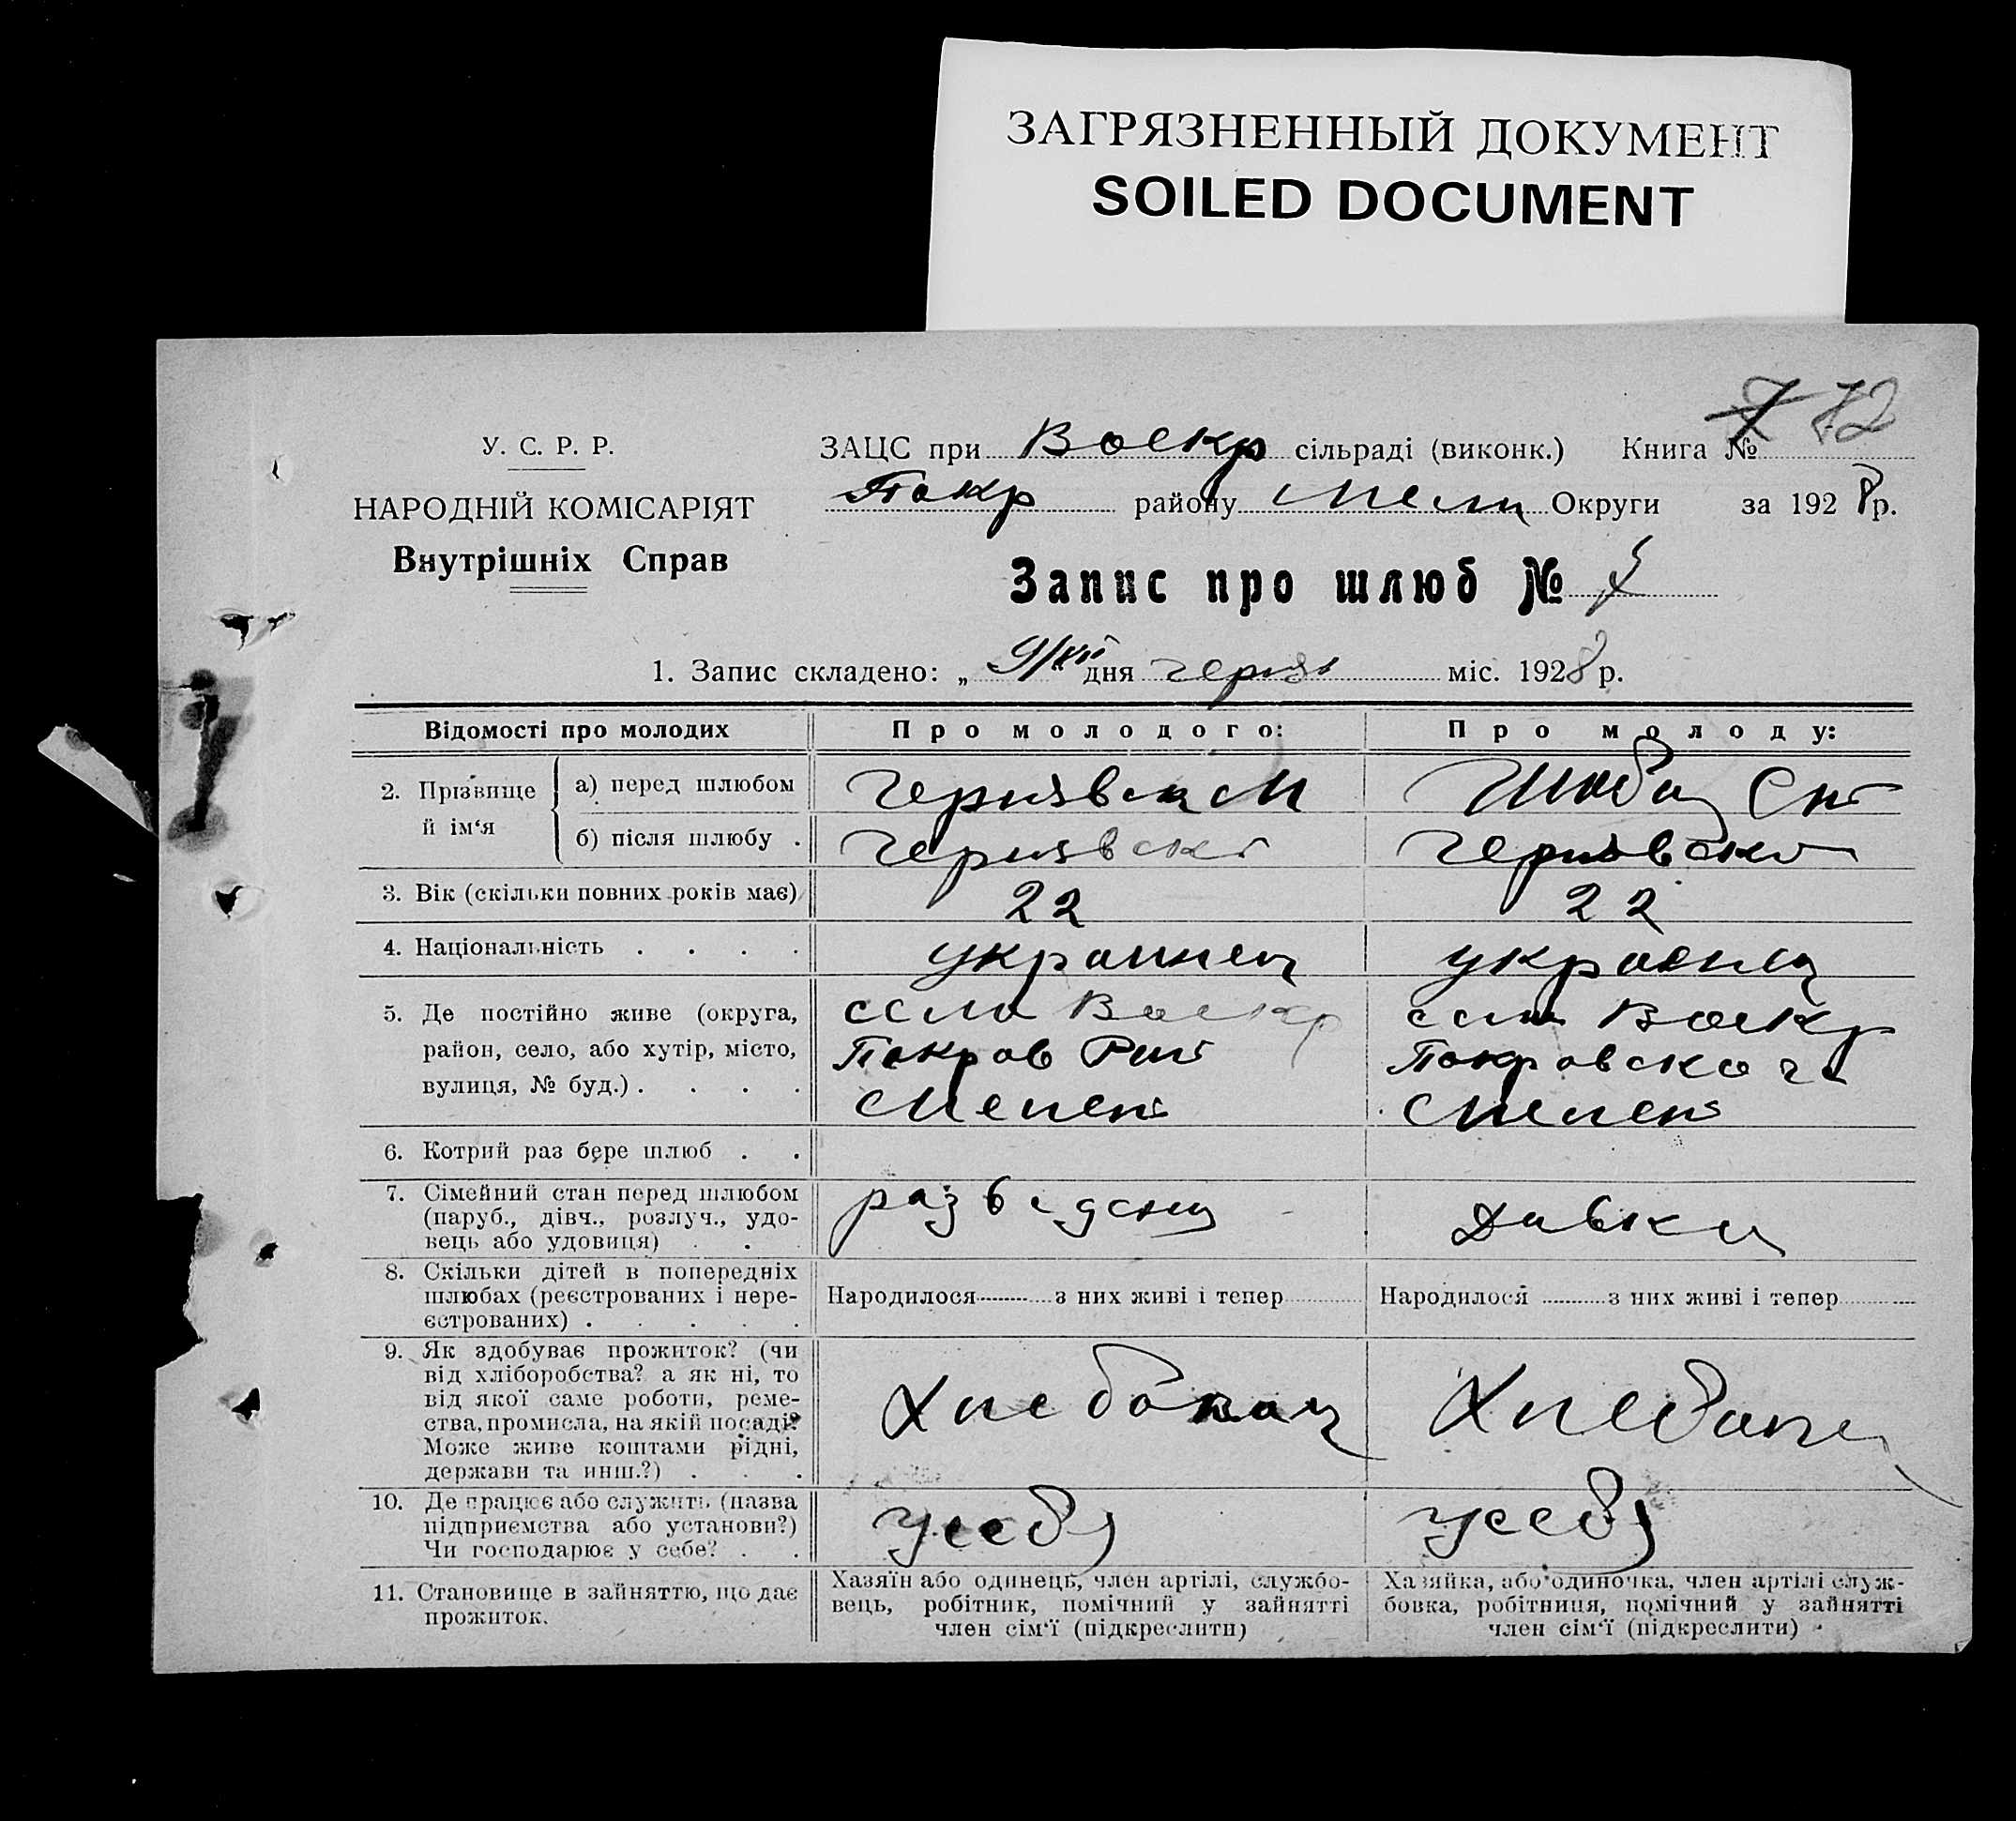 ЗАГРЯЗНЕННЫЙ ДОКУМЕНТ
SOILED DOCUMENT
72
У. С. Р. Р.
НАРОДНІЙ КОМІСАРІЯТ
Внутрішніх Справ
ЗАЦС при Воскр сільраді (виконк.) Книга №
Покр району Мели Округи за 1928 р.
Запис про шлюб №
1. Запис складено: „ 9/VII дня міс. 1928 р.
Відомості про молодих
Про молодого:
Про молоду:
2. Прізвище й ім‘я
а) перед шлюбом
Чернявск М
б) після шлюбу .
Чернявск
Чернявск
3. Вік (скільки повних років має)
22
22
4. Національність . . . .
украинец
5. Де постійно живе (округа,
район, село, або хутір, місто,
вулиця, № буд.) . . . .
село Воскр
Покров
село Воскр
Покровского
6. Котрий раз бере шлюб . .
7. Сімейний стан перед шлюбом
(паруб., дівч., розлуч., удо-
вець або удовиця) . . .
разведен
Девка
8. Скільки дітей в попередніх
шлюбах (реєстрованих і нере-
єстрованих) . . . . .
Народилося з них живі і тепер
Народилося з них живі і тепер
9. Як здобуває прожиток? (чи
від хліборобства? а як ні, то
від якої саме роботи, реме-
ства, промисла, на якій посаді?
Може живе коштами рідні,
держави та инш.?) . . .
Хлебопаш
Хлебопа
10. Де працює або служить (назва
підприємства або установи?)
Чи господарює у себе? . .
усебя
усебя
11. Становище в зайняттю, що дає
прожиток.
Хазяїн або одинець, член артілі, службо-
вець, робітник, помічний у зайнятті
член сім‘ї (підкреслити)
Хазяйка, або одиночка, член артілі служ-
бовка, робітниця, помічний у зайнятті
член сім‘ї (підкреслити)